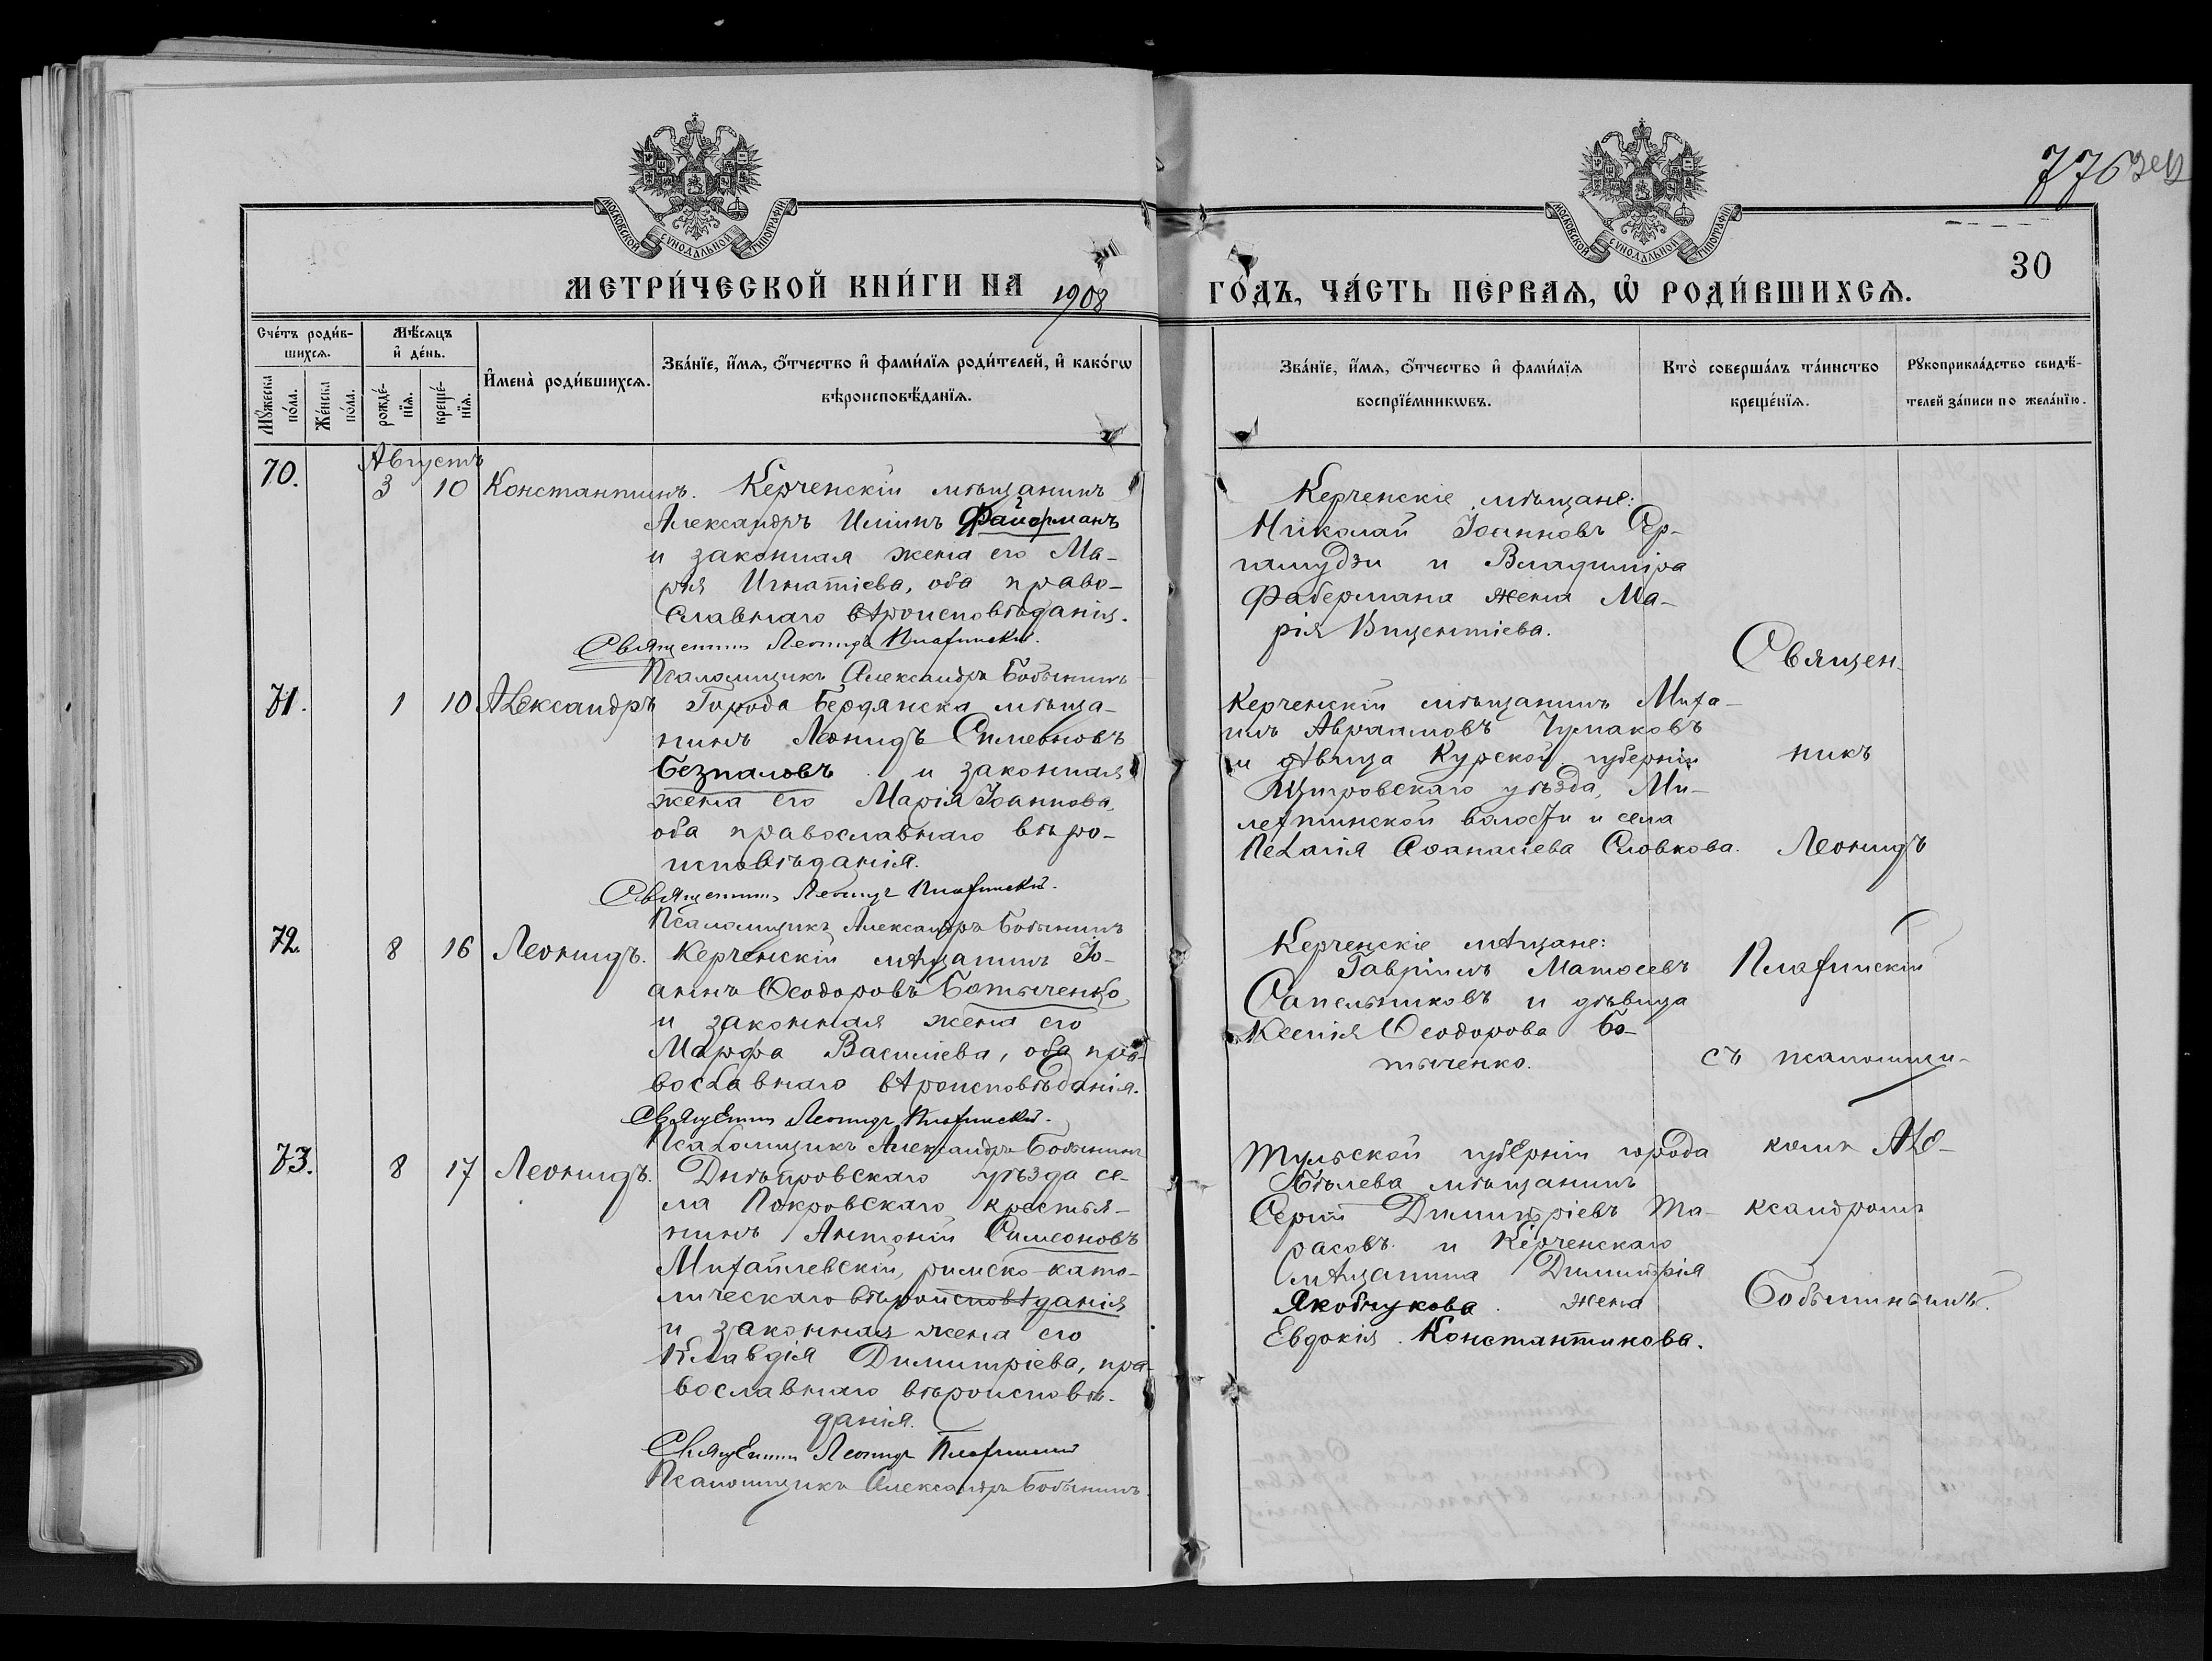 776
МОСКОВСКОЙ СѴНОДАЛЬНОЙ ТИПОГРАФІИ
МОСКОВСКОЙ СѴНОДАЛЬНОЙ ТИПОГРАФІИ
30
МЕТРИ́ЧЕСКОЙ КНИ́ГИ НА 1908 ГО́ДЪ, ЧА́СТЬ ПЕ́РВАѦ, Ѡ҆ РОДИ́ВШИХСѦ.
Сче́тъ роди́в-
шихсѧ.
Мѣ́сѧцъ
и҆ де́нь.
И҆мена̀ роди́вшихсѧ.
Зва́нїе, и҆́мѧ, ѻ҆́тчество и҆ фами́лїѧ роди́телей, и҆ како́гѡ
вѣроисповѣ́данїѧ.
Мꙋ́жеска
по́ла.
Же́нска
по́ла.
рожде́-
нїѧ.
креще́-
нїѧ.
Зва́нїе, и҆́мѧ, ѻ҆́тчество и҆ фами́лїѧ
воспрїе́мникѡвъ.
Кто̀ соверша́лъ та́инство
креще́нїѧ.
Рꙋкоприкла́дство свидѣ́-
телей за́писи по жела́нїю.
Августъ
70. 3 10 Константинъ. Керченскій мѣщанинъ
Александръ Илiинъ Файерманъ
и законная жена его Ма-
рія Игнатіева, оба право-
славнаго вѣроисповѣданія.
Священникъ Леонидъ
Псаломщикъ Александръ Бобынинъ
Керченскіе мѣщане:
Николай Іоанновъ
и Владиміра
Фабермана жена Ма-
рія Викентіева.
71. 1 10 Александръ Города Бердянска мѣща-
нинъ Леонидъ Симеоновъ
Безпаловъ и законная
жена его Марія Іоаннова,
оба православнаго вѣро-
исповѣданія.
Священникъ Леонидъ
Псаломщикъ Александръ Бобынинъ
Керченскій мѣщанинъ Миха-
илъ Авраамовъ Чумаковъ
и дѣвица Курской губерніи
Щигровскаго уѣзда, Ми-
лехтинской волости и села
Пелагія Аѳанасіева Словкова.
72. 8 16 Леонидъ. Керченскій мѣщанинъ Іо-
аннъ Ѳеодоровъ Ботыченко
и законная жена его
Марфа Василіева, оба пра-
вославнаго вѣроисповѣданія.
Священникъ Леонидъ
Псаломщикъ Александръ Бобынинъ
Керченскіе мѣщане:
Гавріилъ Матѳеевъ
Сапельниковъ и дѣвица
Ксенія Ѳеодорова Бо-
тыченко.
73. 8 17 Леонидъ. Днѣпровскаго уѣзда се-
ла Покровскаго крестья-
нинъ Антоній Симеоновъ
Михайлевскій, римско-като-
лическаго вѣроисповѣданія
и законная жена его
Клавдія Димитріева, пра-
вославнаго вѣроисповѣ-
данія.
Священникъ Леонидъ
Псаломщикъ Александръ Бобынинъ
Тульской губерніи города
Бѣлева мѣщанинъ
Сергій Димитріевъ Та-
расовъ и Керченскаго
мѣщанина Димитрія
Якобчукова жена
Евдокія Константинова.
Священ-
никъ
Леонидъ
съ псаломщи-
комъ Але-
ксандромъ
Бобынинымъ.